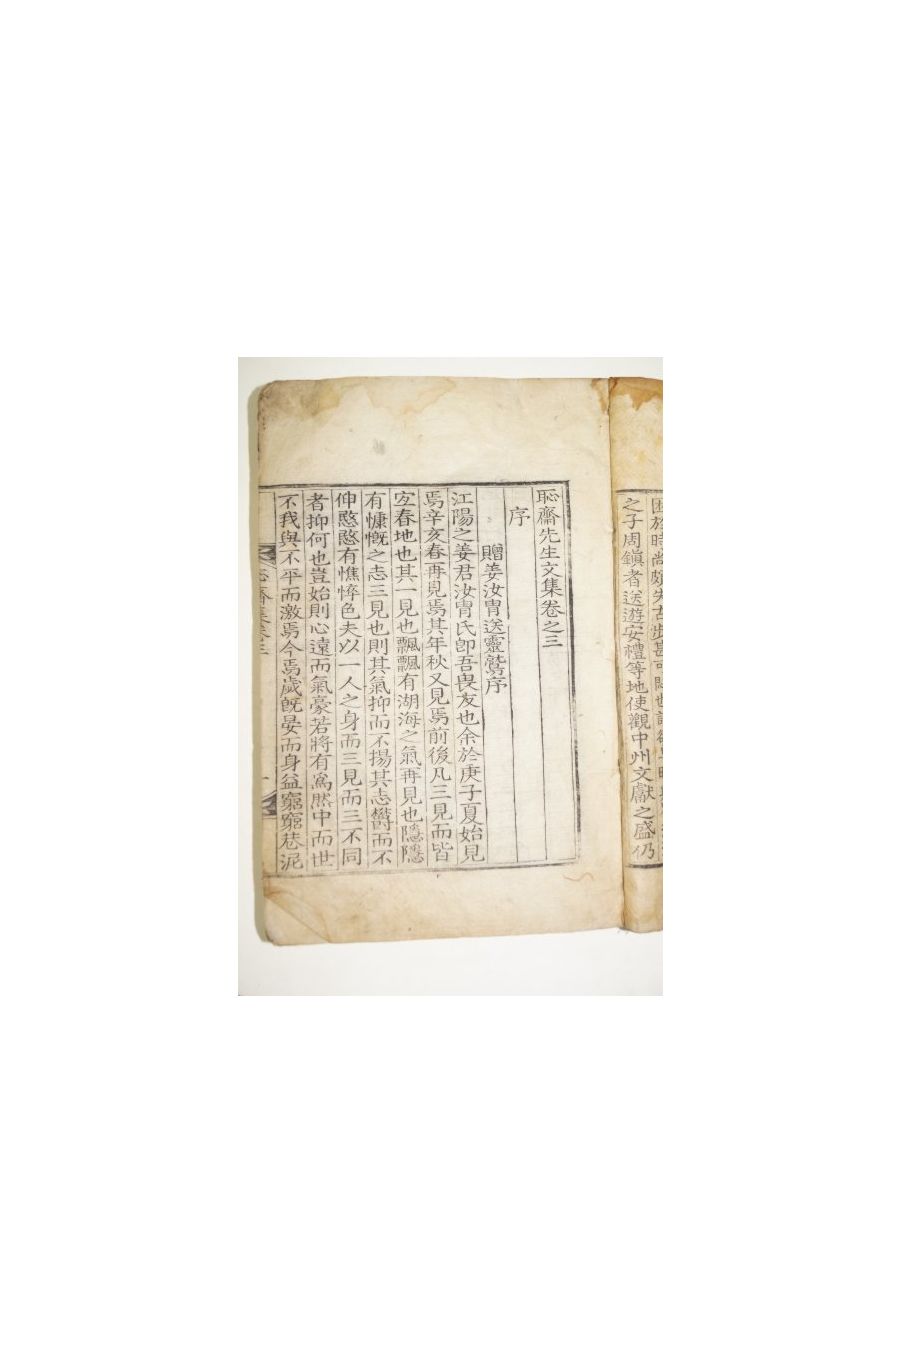 之子周鎭者送遊安禮等地使觀中州文獻之盛仍
恥齋先生文集卷之三
序
贈姜汝胄送靈鷲序
江陽之姜君汝胄氏卽吾畏友也余於庚子夏始見
焉辛亥春再見焉其年秋又見焉前後凡三見而皆
宓春地也其一見也飄飄有湖海之氣再見也隱隱
有慷慨之志三見也則其氣抑而不揚其志欝而不
伸愍愍有憔悴色夫以一人之身而三見而三不同
者抑何也豈始則心遠而氣豪若將有爲然中而世
不我與不平而激焉今焉歲旣晏而身益窮窮巷泥